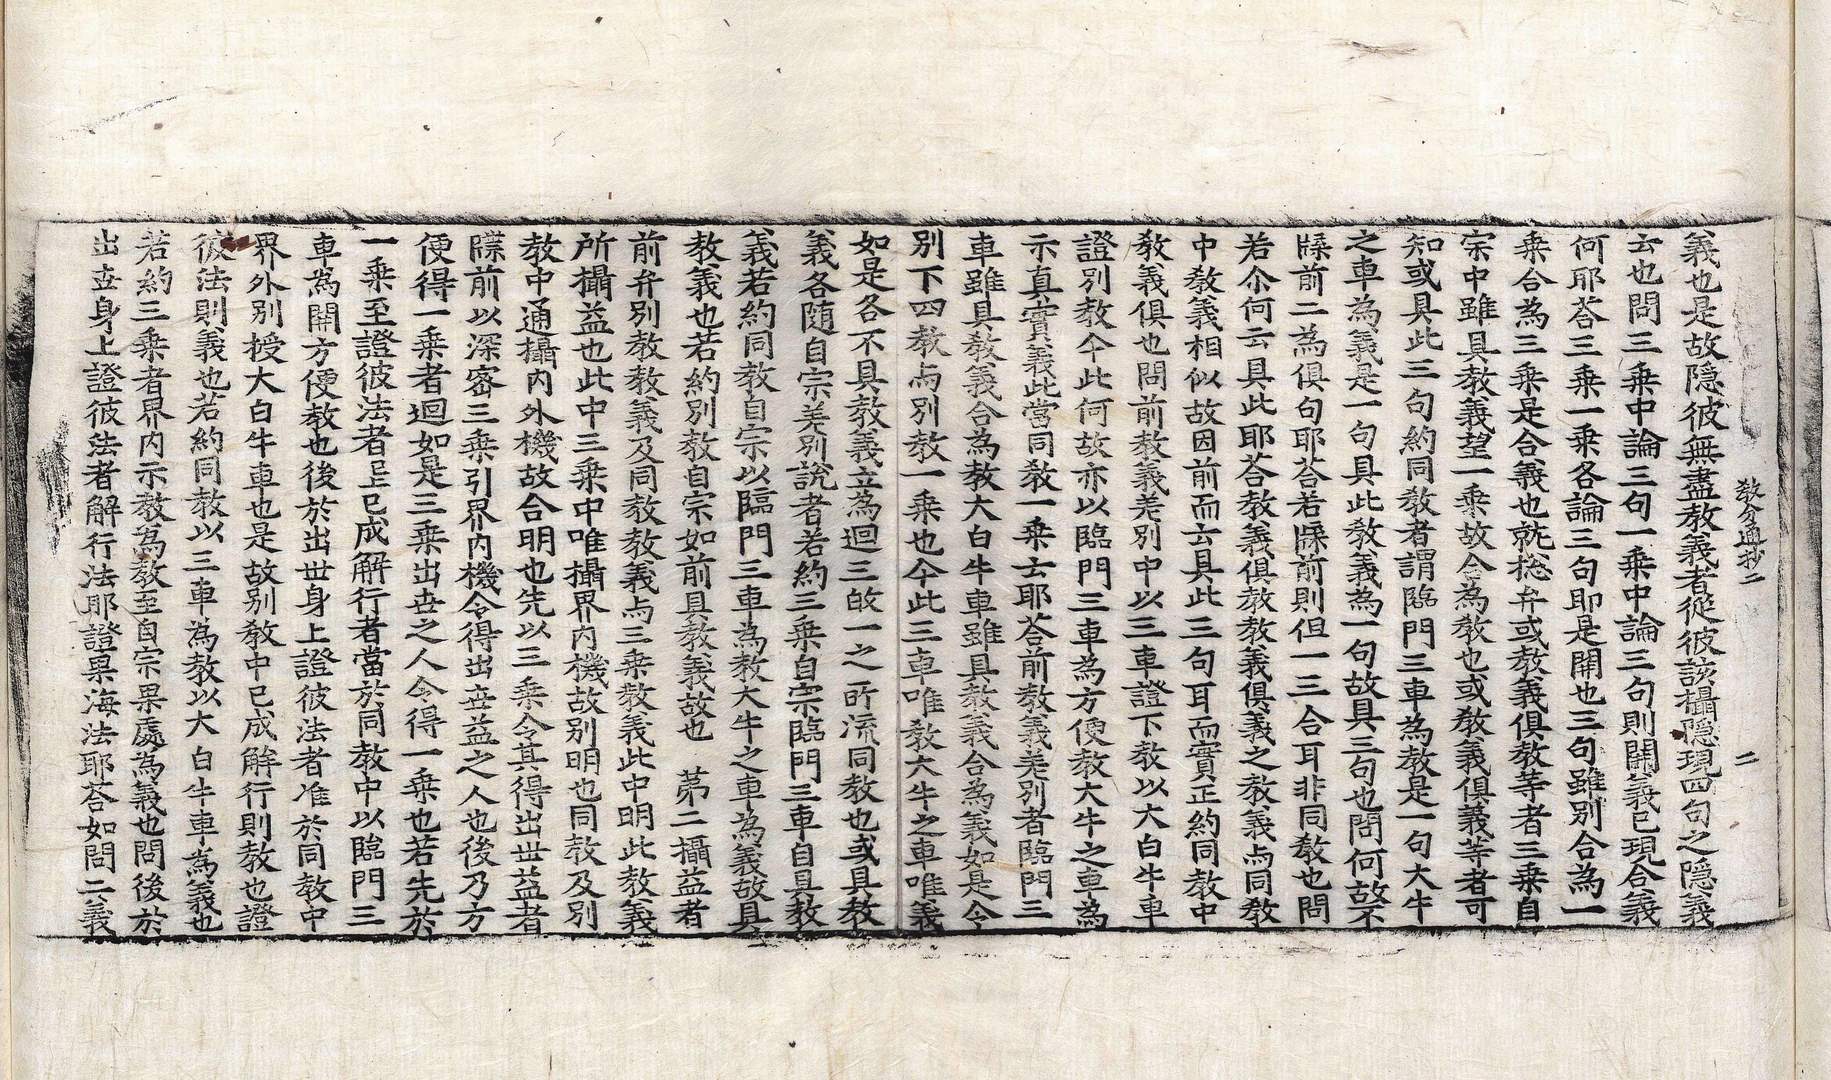 教分通抄二
二
義也是故隐彼無盡教義者從彼該攝隱現四句之隱義
去也問三乘中論三句一乘中論三句則開義已現合義
何耶荅三乘一乘各論三句即是開也三句雖別合為一
乘合為三乘是合義也就捴弁或教義俱教等者三乘自
宗中雖具教義望一乘故令為教也或教義俱義等者可
知或具此三句約同教者謂臨門三車為教是一句大牛
之車為義是一句具此教義為一句故具三句也問何故不
牒前二為俱句耶荅若牒前則但一三合耳非同教也問
若尒何云具此耶荅教義俱教教義俱義之教義与同教
中教義相似故因前而云具此三句耳而實正約同教中
教義俱也問前教義差別中以三車證下教以大白牛車
證別教今此何故亦以臨門三車為方便教大牛之車為
示真實義此當同教一乘士耶荅前教義差別者臨門三
車雖具教義合為教大白牛車雖具教義合為義如是令
別下四教与別教一乘也今此三車唯教大牛之車唯義
如是各不具教義立為迴三故一之所流同教也或具教
義各随自宗差別說者若約三乘自宗臨門三車自具教
義若約同教自宗以臨門三車為教大牛之車為義故具
教義也若約別教自宗如前具教義故也　苐二攝益者
前弁別教教義及同教教義与三乘教義此中明此教義
所攝益也此中三乘中唯攝界內機故別明也同教及別
教中通攝內外機故合明也先以三乘令其得出世益者
牒前以深密三乘引界內機令得出世益之人也後乃方
便得一乘者迴如是三乘出世之人令得一乘也若先於
一乘至證彼法者㠯已成解行者當於同教中以臨門三
車為開方便教也後於出世身上證彼法者准於同教中
界外別授大白牛車也是故別教中已成解行則教也證
彼法則義也若約同教以三車為教以大白牛車為義也
若約三乘者界內示教為教至自宗果處為義也問後於
出世身上證彼法者解行法耶證果海法耶荅如問二義